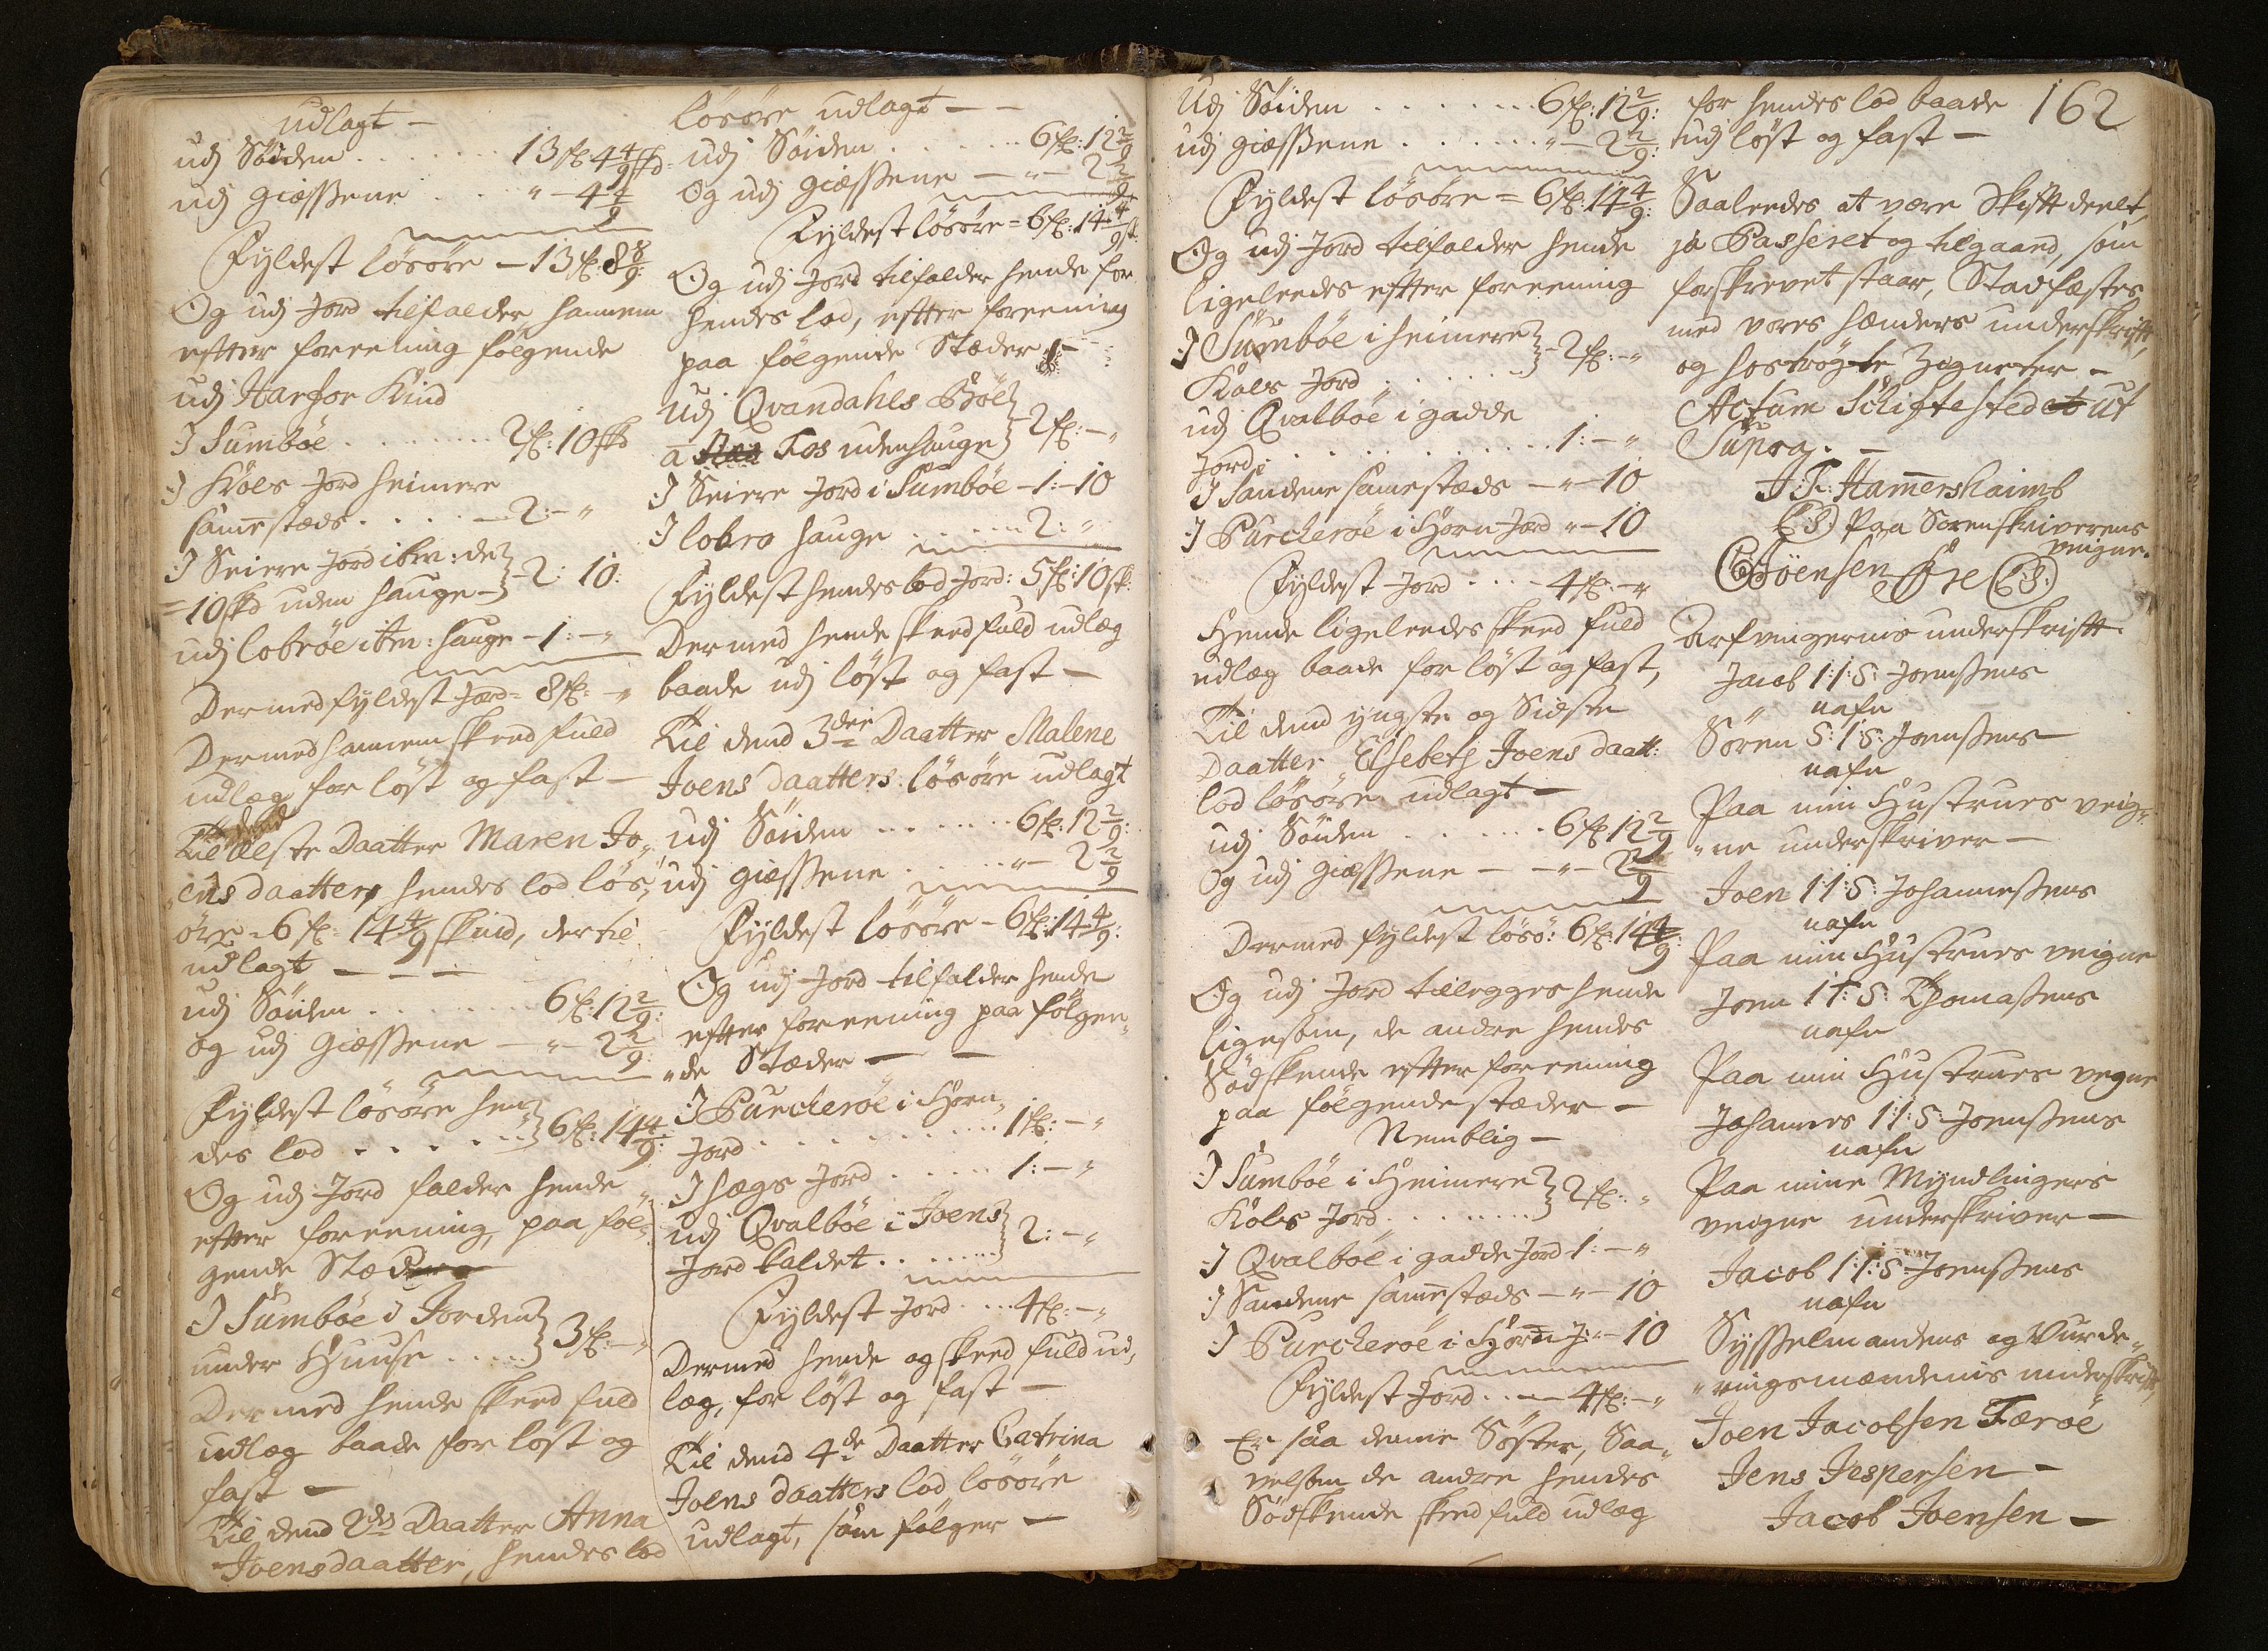 udlagt -
udj Söiden . . . . . . 13 fl: 4 4/9 skd
udj giæssene . . " - 4 4/9
Fyldest lösöre - 13 fl: 8 8/9:
Og udj Jord tilfalder hannem
efter foreening følgende
udj Harfor Kind
J Sumböe . . . . . . . 2 fl: 10 skd
J Köles Jord heimere
samestæds . . . . - 2: - "
J Seiere Jord ibm: de
= 10 skd uden hauge - 2: 10:
udj lobröe ibm: hauge - 1: - "
Dermed fyldest Jord = 8 fl: - "
Dermed hannem skeed fuld
udlæg for löst og fast -
Til dend
Elste Daatter Maren Jo-
ens daatters hendes lod lös-
öre = 6 fl: 14 4/9 skind, dertil
udlagt - - -
udj Söiden . . . . . . 6 fl: 12 2/9:
og udj giæssene - " - 2 2/9:
Fyldest lösöre hen-
des lod . . . . . . 6 fl: 14 4/9:
Og udj Jord falder hende
efter foreening, paa föl-
gende Stæder
J Sumböe i Jorden
under Huuse . . . . 3 fl: - "
Dermed hende skeed fuld
udlæg baade for löst og
fast -
Til dend 2den Daatter Anna
Joensdaatter, hendes lod
lösöre udlagt - -
udj Söiden . . . . . . 6 fl: 12 2/9
Og udj giæssene - " - 2 2/9
Fyldest lösöre = 6 fl: 14 4/9 sk:
Og udj Jord tilfalder hende for
hendes lod, efter foreening
paa følgende Stæder: -
Udj Qvandahls Böle
a Fos udenhauge 2 fl: - "
J Seiere Jord i Sumböe - 1: - 10
J lobro hauge . . . . . 2: "
Fyldest hendes lod Jord: 5 fl: 10 sk:
Dermed hende skeed fuld udlæg
baade udj löst og fast -
Til dend 3die Daatter Malene
Joens daatters lösöre udlagt
udj Söiden . . . . . . . 6 fl: 12 2/9:
udj giæssene . . . . " - 2 2/9
Fyldest lösöre - 6 fl: 14 4/9:
Og udj Jord tilfalder hende
efter foreening paa følgen-
"de Stæder - -
J Purckeröe i Hörn
Jord . . . . . . . . . . 1 fl: - "
J hægs Jord . . . . . . 1: - "
udj Qvalböe i Joens
Jord kaldet . . . . . . 2: - "
Fyldest Jord . . . 4 fl: - "
Dermed hende og skeed fuld ud-
læg, for löst og fast -
Til dend 4de Daatter Catrina
Joens daatters lod lösöre
udlagt, som følger -
Udj Söiden . . . . . . . 6 fl: 12 2/9:
udj giæssene . . . . . . " - 2 2/9:
Fyldest lösöre = 6 fl: 14 4/9:
Og udj Jord tilfalder hende
ligeleedes efter foreening
J Sumböe i heimere
Köles Jord . . . . . . 2 fl: - "
udj Qvalböe i gadde
Jord: . . . . . . . . . . . . 1: - "
J Sandene samestæds - " - 10
J Purckeröe i Hörn Jord " - 10
Fyldest Jord . . . . 4 fl: - "
Hende ligeleedes skeed fuld
udlæg baade for löst og fast,
Til dend yngste og Sidste
Daatter Elsebeth Joens daatt:
lod lösöre udlagt -
udj Söiden . . . . . . 6 fl: 12 2/9
Og udj giæssene - - " - 2 2/9
Dermed fyldest lösö: 6 fl: 14 4/9:
Og udj Jord tillegges hende
ligesom, de andre hendes
Södskende efter foreening
paa følgende stæder -
Nemblig -
J Sumböe i Heimere
Köles Jord . . . . . . . . . 2 fl: "
J Qvalböe i gadde Jord - 1: - "
J Sandene samestæds - " - 10
J Purckeröe i Hörn J: " - 10
Fyldest Jord . . - 4 fl: - "
Er saa denne Söster, Saa-
velsom de andre hendes
Södskende skeed fuld udlæg
162
for hendes lod baade
udj löst og fast -
Saaleedes at være Skift deelt,
ja Passeret og tilgaaed, som
forskrevet staar, Stadfæstes
med vores hænders underskrift,
og hoströgte Zigneter -
Actum Schiftested ut
Supra. -
J. T. Hamershaimb
(L S) Paa Sorenskriverens
veigne.
Joensen Öre (L S.)
Arfvingernes underskrift
Jacob I: I: S: Joenssens
nafn
Sören S: I: S: Joenssens
nafn
Paa min Hustrues veig-
"ne underskriver -
Joen I: I: S: Johannessens
nafn
Paa min Hustrues veigne
Joen I T: S: Thomassens
nafn
Paa min Hustrues vegne
Johannes I: I: S: Joenssens
nafn
Paa mine Myndlingers
veigne underskriver -
Jacob I: I: S: Joenssens
nafn
Sysselmandens og Vurde-
"ringsmændenis underskrift,
Joen Jacobsen Færöe
Jens Jespersen -
Jacob Joensen -